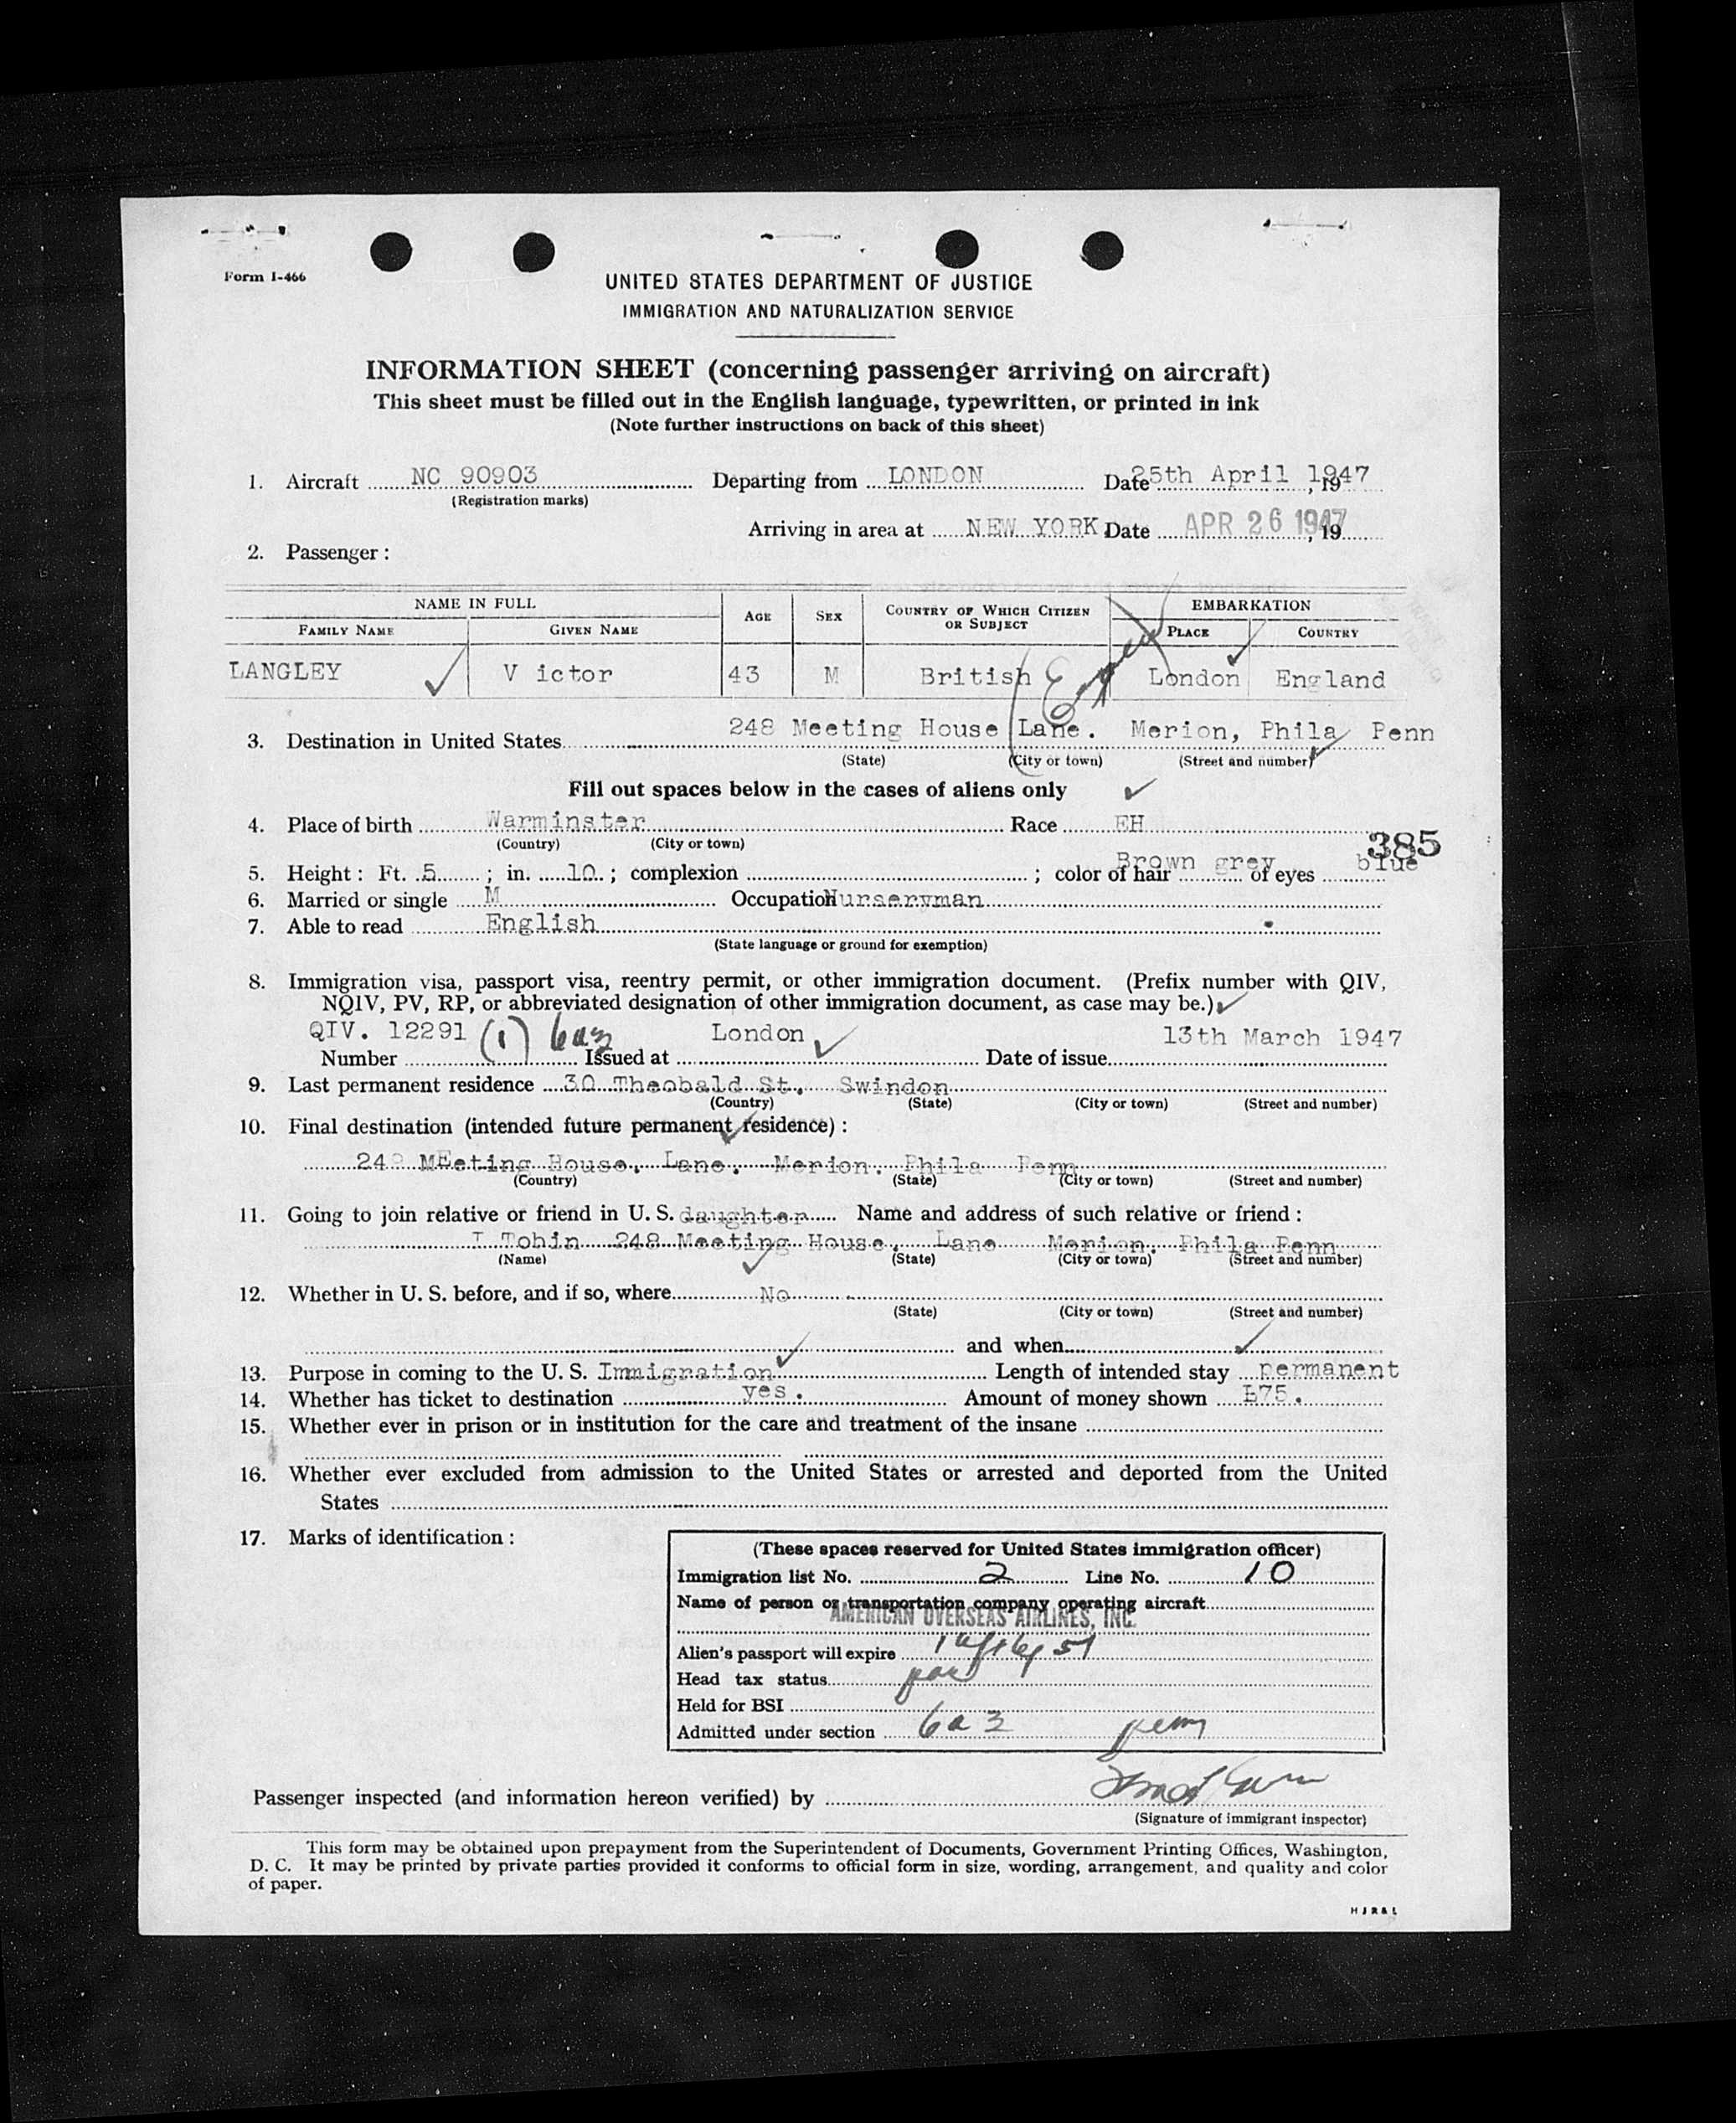 Form I-466
UNITED STATES DEPARTMENT OF JUSTICE
IMMIGRATION AND NATURALIZATION SERVICE
INFORMATION SHEET (concerning passenger arriving on aircraft)
This sheet must be filled out in the English language, typewritten, or printed in ink
(Note further instructions on back of this sheet)
1. Aircraft NC 90903 Departing from LONDON Date 25th April 1947, 19
(Registration marks)
Arriving in area at NEW YORK Date APR 26 1947, 19
2. Passenger:
NAME IN FULL AGE SEX COUNTRY OF WHICH CITIZEN OR SUBJECT EMBARKATION
FAMILY NAME GIVEN NAME PLACE COUNTRY
LANGLEY V ictor 43 M British London England
3. Destination in United States 248 Meeting House Lane. Merion, Phila Penn
(State) (City or town) (Street and number)
Fill out spaces below in the cases of aliens only
4. Place of birth Warminster Race EH
(Country) (City or town)
385
5. Height: Ft. 5; in. 10; complexion ; color of hair Brown grey of eyes blue
6. Married or single M Occupation Nurseryman
7. Able to read English
(State language or ground for exemption)
8. Immigration visa, passport visa, reentry permit, or other immigration document. (Prefix number with QIV,
NQIV, PV, RP, or abbreviated designation of other immigration document, as case may be.)
QIV. 12291 (1) 6a3 London 13th March 1947
Number Issued at Date of issue
9. Last permanent residence 30 Theobald St. Swindon
(Country) (State) (City or town) (Street and number)
10. Final destination (intended future permanent residence):
248 MEeting House. Lane. Merion. Phila Penn
(Country) (State) (City or town) (Street and number)
11. Going to join relative or friend in U. S. daughter Name and address of such relative or friend:
I Tobin 248 Meeting House. Lane Merion. Phila Penn
(Name) (State) (City or town) (Street and number)
12. Whether in U. S. before, and if so, where No
(State) (City or town) (Street and number)
and when
13. Purpose in coming to the U. S. Immigration Length of intended stay permanent
14. Whether has ticket to destination yes. Amount of money shown £75.
15. Whether ever in prison or in institution for the care and treatment of the insane
16. Whether ever excluded from admission to the United States or arrested and deported from the United
States
17. Marks of identification:
(These spaces reserved for United States immigration officer)
Immigration list No. 2 Line No. 10
Name of person or transportation company operating aircraft
AMERICAN OVERSEAS AIRLINES, INC.
Alien's passport will expire
Head tax status
Held for BSI
Admitted under section 6a3 perm
Passenger inspected (and information hereon verified) by
(Signature of immigrant inspector)
This form may be obtained upon prepayment from the Superintendent of Documents, Government Printing Offices, Washington,
D. C. It may be printed by private parties provided it conforms to official form in size, wording, arrangement, and quality and color
of paper.
H J R & L